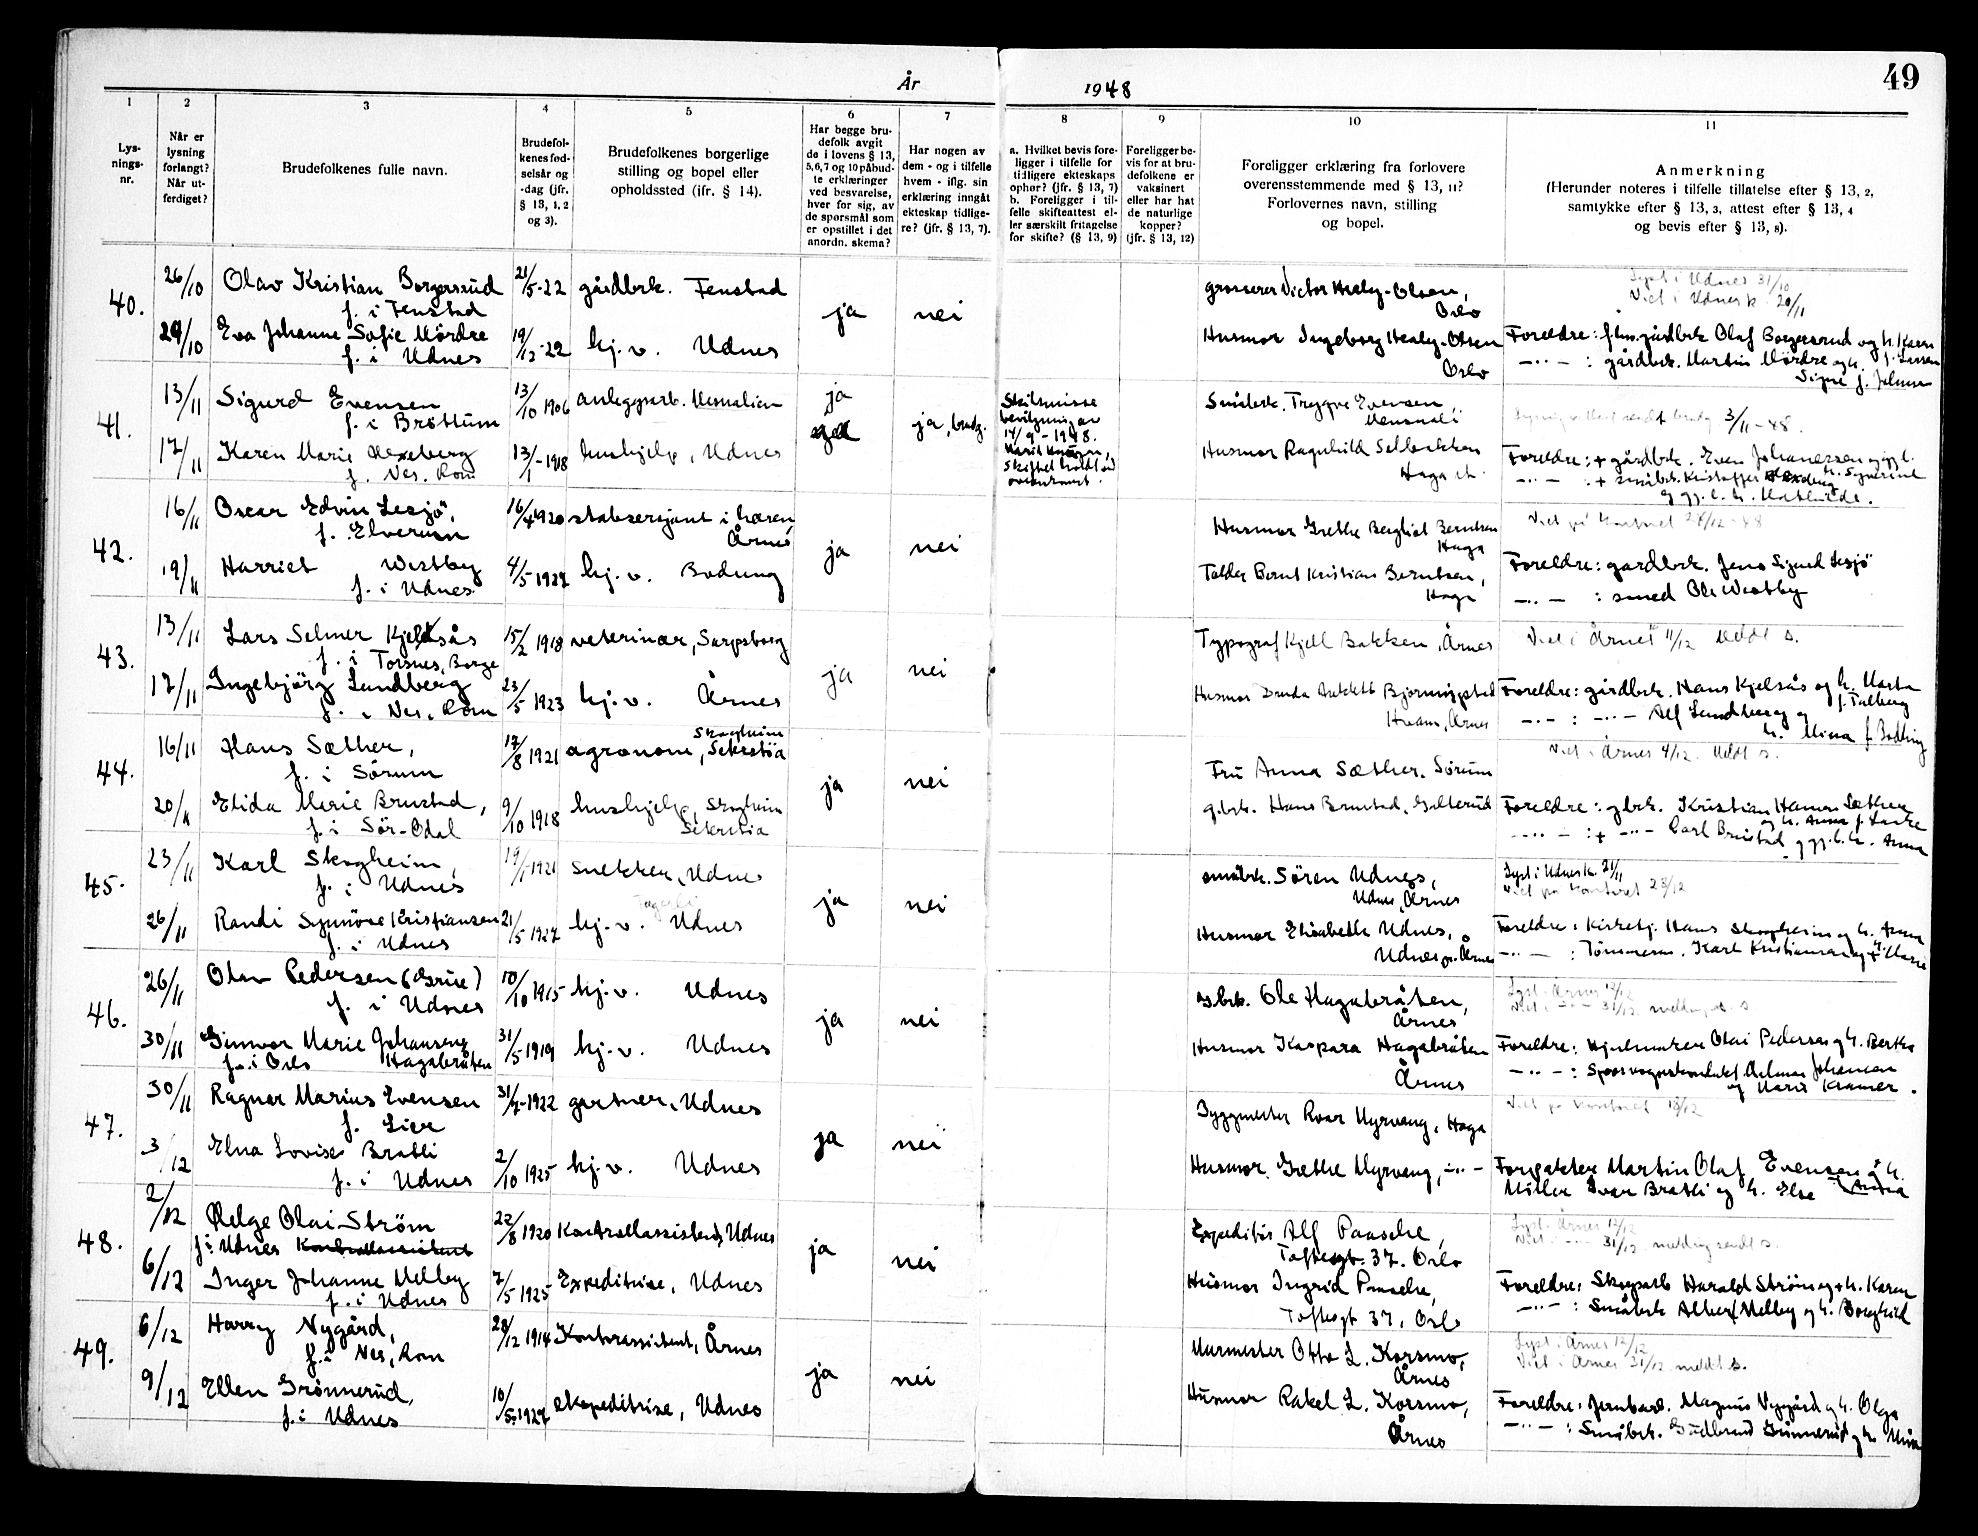 År
1948
49
1
2
3
4
5
6
7
8
9
10
11
Lys-
nings-
nr.
Når er
lysning
forlangt?
Når ut-
ferdiget?
Brudefolkenes fulle navn.
Brudefol-
kenes fød-
selsår og
-dag (jfr.
§ 13, 1, 2
og 3).
Brudefolkenes borgerlige
stilling og bopel eller
opholdssted (jfr. § 14).
Har begge bru-
defolk avgit
de i lovens § 13,
5,6,7 og 10 påbud-
te erklæringer
ved besvarelse,
hver for sig, av
de spørsmål som
er opstillet i det
anordn. skema?
Har nogen av
dem - og i tilfelle
hvem - iflg. sin
erklæring inngått
ekteskap tidlige-
re? (jfr. § 13, 7).
a. Hvilket bevis fore-
ligger i tilfelle for
tidligere ekteskaps
ophør? (jfr. § 13, 7)
b. Foreligger i til-
felle skifteattest el-
ler særskilt fritagelse
for skifte? (§ 13, 9)
Foreligger be-
vis for at bru-
defolkene er
vaksinert
eller har hat
de naturlige
kopper?
(jfr. § 13, 12)
Foreligger erklæring fra forlovere
overensstemmende med § 13, 11?
Forlovernes navn, stilling
og bopel.
Anmerkning
(Herunder noteres i tilfelle tillatelse efter § 13, 2,
samtykke efter § 13, 3, attest efter § 13, 4
og bevis efter § 13, 8).
40.
26/10
Olav Kristian Borgersrud
f. i Fenstad
21/5-22
gårdbrk. Fenstad
29/10
Eva Johanne Sofie Mördre
f. i Udnes
19/12-22
hj. v. Udnes
ja
nei
grosserer Victor Healy-Olsen,
Oslo
Husmor Ingeborg Healy-Olsen
Oslo
Lyst i Udnes 31/10
Viet i Udnes k. 20/11
Foreldre: gårdbrk Olaf Borgersrud og h. Karen
f. Larsen
—··— : gårdbrk. Martin Mördre og h.
Signe f. Johnsen
41.
13/11
Sigurd Evensen
f. i Bröttum
13/10 1906
anleggsarb.
17/11
Karen Marie
f. Nes, Rom
13/1-1918
hushjelp, Udnes
ja
ja, brudg.
Skilsmisse
bevilgning av
14/9-1948.
Småbrk. Tryggve Evensen
Husmor Ragnhild
Haga st.
3/11-48.
Foreldre: + gårdbrk. Even Johannessen
—··— : + småbrk. Kristoffer
42.
16/11
Oscar Edvin Lesjö,
f. Elverum
16/4 1920
stabsersjant i hæren,
Årnes
19/11
Harriet Westby
f. i Udnes
4/5 1927
hj. v. Bodung
ja
nei
Husmor Grethe Bergliot Berntsen
Haga
Telder Bernt Kristian Berntsen,
Haga
Viet på kontoret 24/12-48
Foreldre: gårdbrk. Jens Sigurd Lesjö
—··— : smed Ole Westby
43.
13/11
Lars Selmer Kjelsås
f. i Torsnes, Borge
15/2 1918
veterinær, Sarpsborg
17/11
Ingebjörg Lundberg
f. i Nes, Rom
23/5 1923
hj. v. Årnes
ja
nei
Typograf Kjell Bakken, Årnes
Husmor
Hvam, Årnes
Viet i Årnes 11/12 Meldt s.
Foreldre: gårdbrk. Hans Kjelsås og h. Marta
f. Talberg
—··— : —··— Alf Lundberg og
h. Mina f. Bodding
44.
16/11
Hans Sæther,
f. i Sörum
17/8 1921
agronom, Skogheim
Seterstöa
20/11
Elida Marie Brustad,
f. i Sör-Odal
9/10 1918
hushjelp, Skogheim
Seterstöa
ja
nei
Fru Anna Sæther. Sörum
g.brk. Hans Brustad, Galterud
Viet i Årnes 4/12. Meldt s.
Foreldre: gbrk. Kristian Hansen Sæther
og h. Anna f.
—··— : + —··— Carl Brustad og gj. l. h. Anna
45.
23/11
Karl Skogheim,
f. i Udnes
19/1-1921
snekker, Udnes
26/11
Randi Synnöve Kristiansen
f. i Udnes
21/5 1927
hj. v. Udnes
ja
nei
småbrk. Sören Udnes,
Udnes, Årnes
Husmor Elisabeth Udnes,
Udnes pr. Årnes
Lyst i Udnes k. 21/11
Viet på kontoret 23/12
Foreldre: Kirketj. Hans Skogheim og h. Anna
—··— : Tömmerm. Karl Kristiansen og h. Marie
46.
26/11
Olav Pedersen (Grue)
f. i Udnes
10/10 1915
hj. v. Udnes
30/11
Gunvor Marie Johansen
f. i Oslo Hagabråten
31/5 1919
hj. v. Udnes
ja
nei
gbrk. Ole Hagabråten,
Årnes
Husmor Kaspara Hagabråten
Årnes
Lyst i Årnes 12/12
Viet i —··— 31/12. melding s. s
Foreldre: Hjulmaker Olai Pedersen og h. Berthe
—··— : Sporvognskonduktör Johansen
og Marie Kramer.
47.
30/11
Ragnar Marius Evensen
f. Lier
31/7-1922
gartner, Udnes
3/12
Elna Lovise Bratli
f. i Udnes
2/10 1925
hj. v. Udnes
ja
nei
Byggmester Roar Myrvang, Haga
Husmor. Grethe Myrvang, —··—
Viet på kontoret 18/12
Forpakter Martin Olaf Evensen og h.
Anna
Möller Ivar Bratli og h. Else
48.
2/12
Helge Olai Ström
f. i Udnes Kontrollassistent
22/8 1920
Kontrollassistent, Udnes
6/12
Inger Johanne Melby
f. i Udnes
7/5 1925
Expeditrise, Udnes
ja
nei
Expeditör Alf Paasche,
Toftesgt. 37. Oslo
Husmor Ingrid Paasche,
Toftesgt 37, Oslo
Lyst i Årnes 12/12
Viet i —··— 31/12. melding sendt s.
Foreldre: Skogsarb Harald Ström og h. Karen
—··— : Småbrk Albert Melby og h. Borghild
49.
6/12
Harry Nygård,
f. i Nes, Rom
28/12 1914
Kontorassistent, Årnes
9/12
Ellen Grönnerud,
f. i Udnes
10/5-1927
ekspeditrise, Udnes
ja
nei
Murmester Otto L. Korsmo,
Årnes
Husmor Rakel L. Korsmo,
Årnes
Lyst i Årnes 12/12
Viet i Årnes 31/12. meldt s.
Foreldre: Jernbarb. Magnus Nygård og h. Olga
—··— : Småbrk. Gudbrand Grönnerud og h.